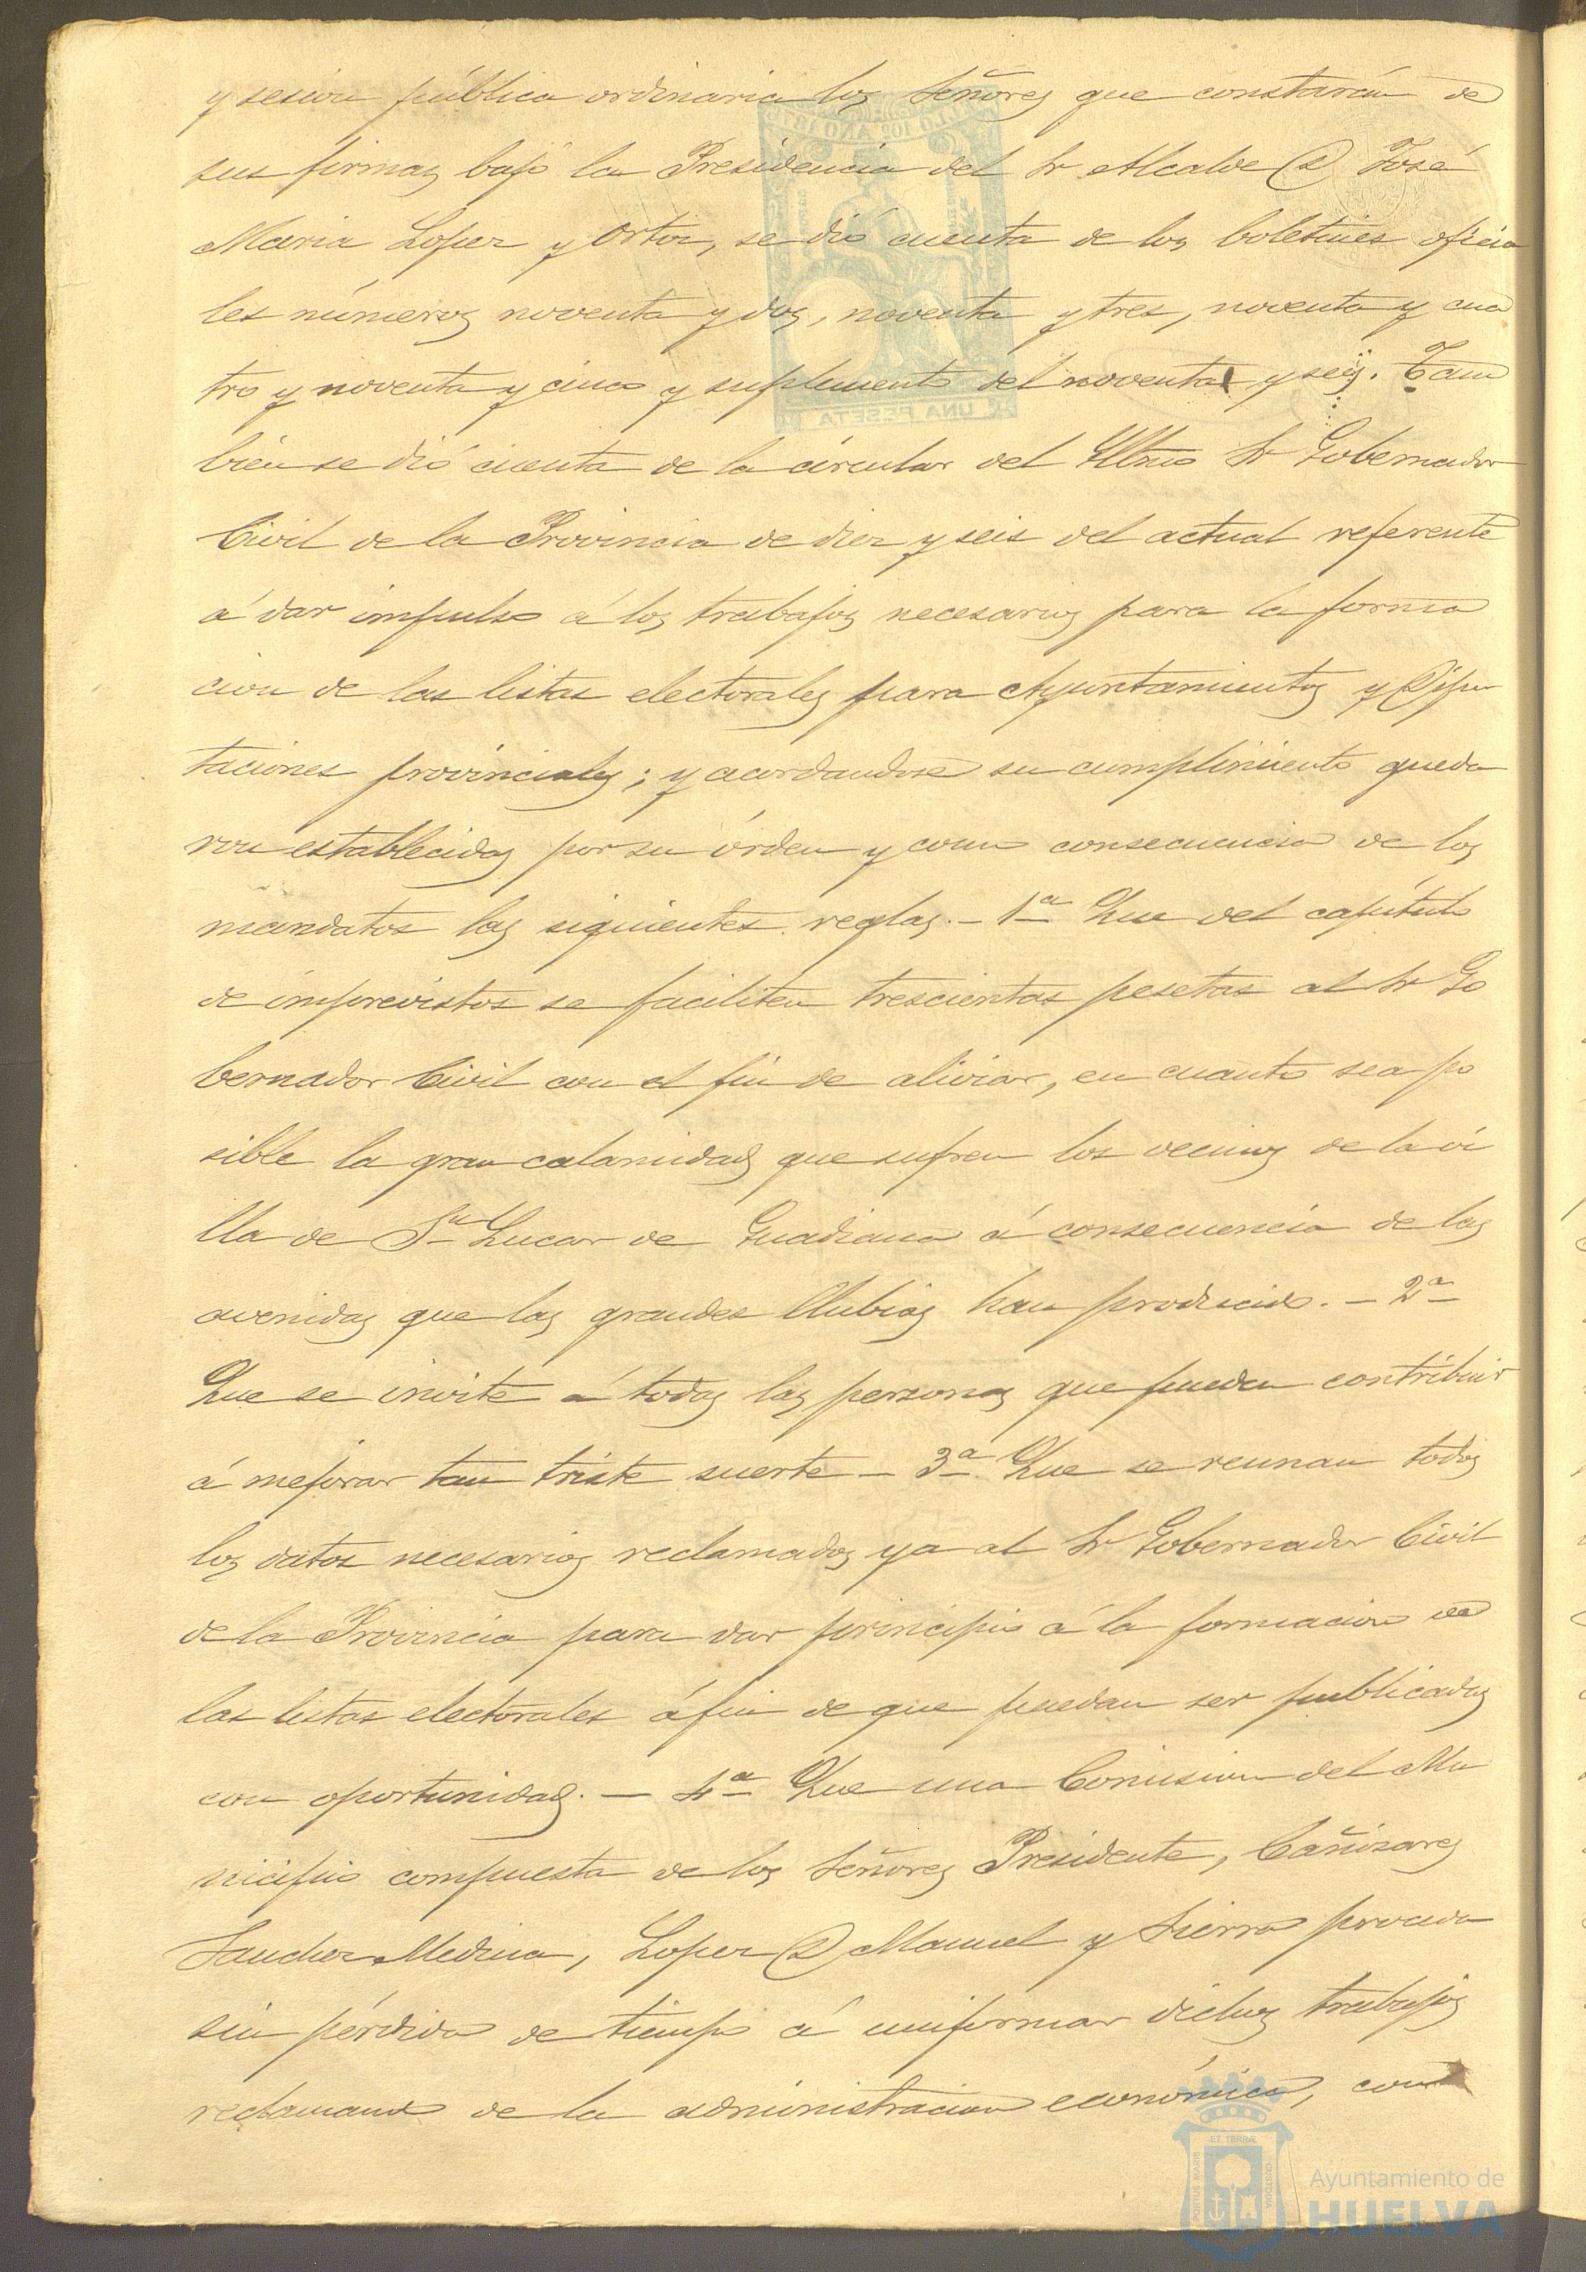 y sesion pública ordinaria los Señores que constarán de
sus firmas bajo la Presidencia del Sr Alcalde D José
Maria Lopez y Ortiz, se dió cuenta de los boletines oficia
les números noventa y dos, noventa y tres, noventa y cua
tro y noventa y cinco y suplemento del noventa y seis. Tam
bien se dió cuenta de la circular del Iltmo Sr Gobernador
Civil de la Provincia de diez y seis del actual referente
á dar impulso á los trabajos necesarios para la forma
cion de las listas electorales para Ayuntamientos y Dipu
taciones provinciales; y acordandose su cumplimiento queda
ron establecidas por su órden y como consecuencia de los
mandatos las siguientes reglas. - 1ª Que del capítulo
de imprevistos se faciliten trescientas pesetas al Sr Go
bernador Civil con el fin de aliviar, en cuanto sea po
sible la gran calamidad que sufren los vecinos de la vi
lla de Sn Lucar de Guadiana á consecuencia de las
avenidas que las grandes llubias han producido. - 2ª
Que se invite á todas las personas que pueden contribuir
á mejorar tan triste suerte - 3ª Que se reunan todos
los datos necesarios reclamados ya al Sr Gobernador Civil
de la Provincia para dar principio á la formacion de
las listas electorales á fin de que puedan ser publicadas
con oportunidad. - 4ª Que una Comision del Mu
nicipio compuesta de los Señores Presidente, Cañizares
Sanchez Medina, Lopez D Manuel y Sierra proceda
sin pérdida de tiempo á uniformar dichos trabajos
reclamando de la administracion económica, como
UNA PESETA
ET TERRÆ
PORTUS MARIS
CUSTODIA
Ayuntamiento de
HUELVA